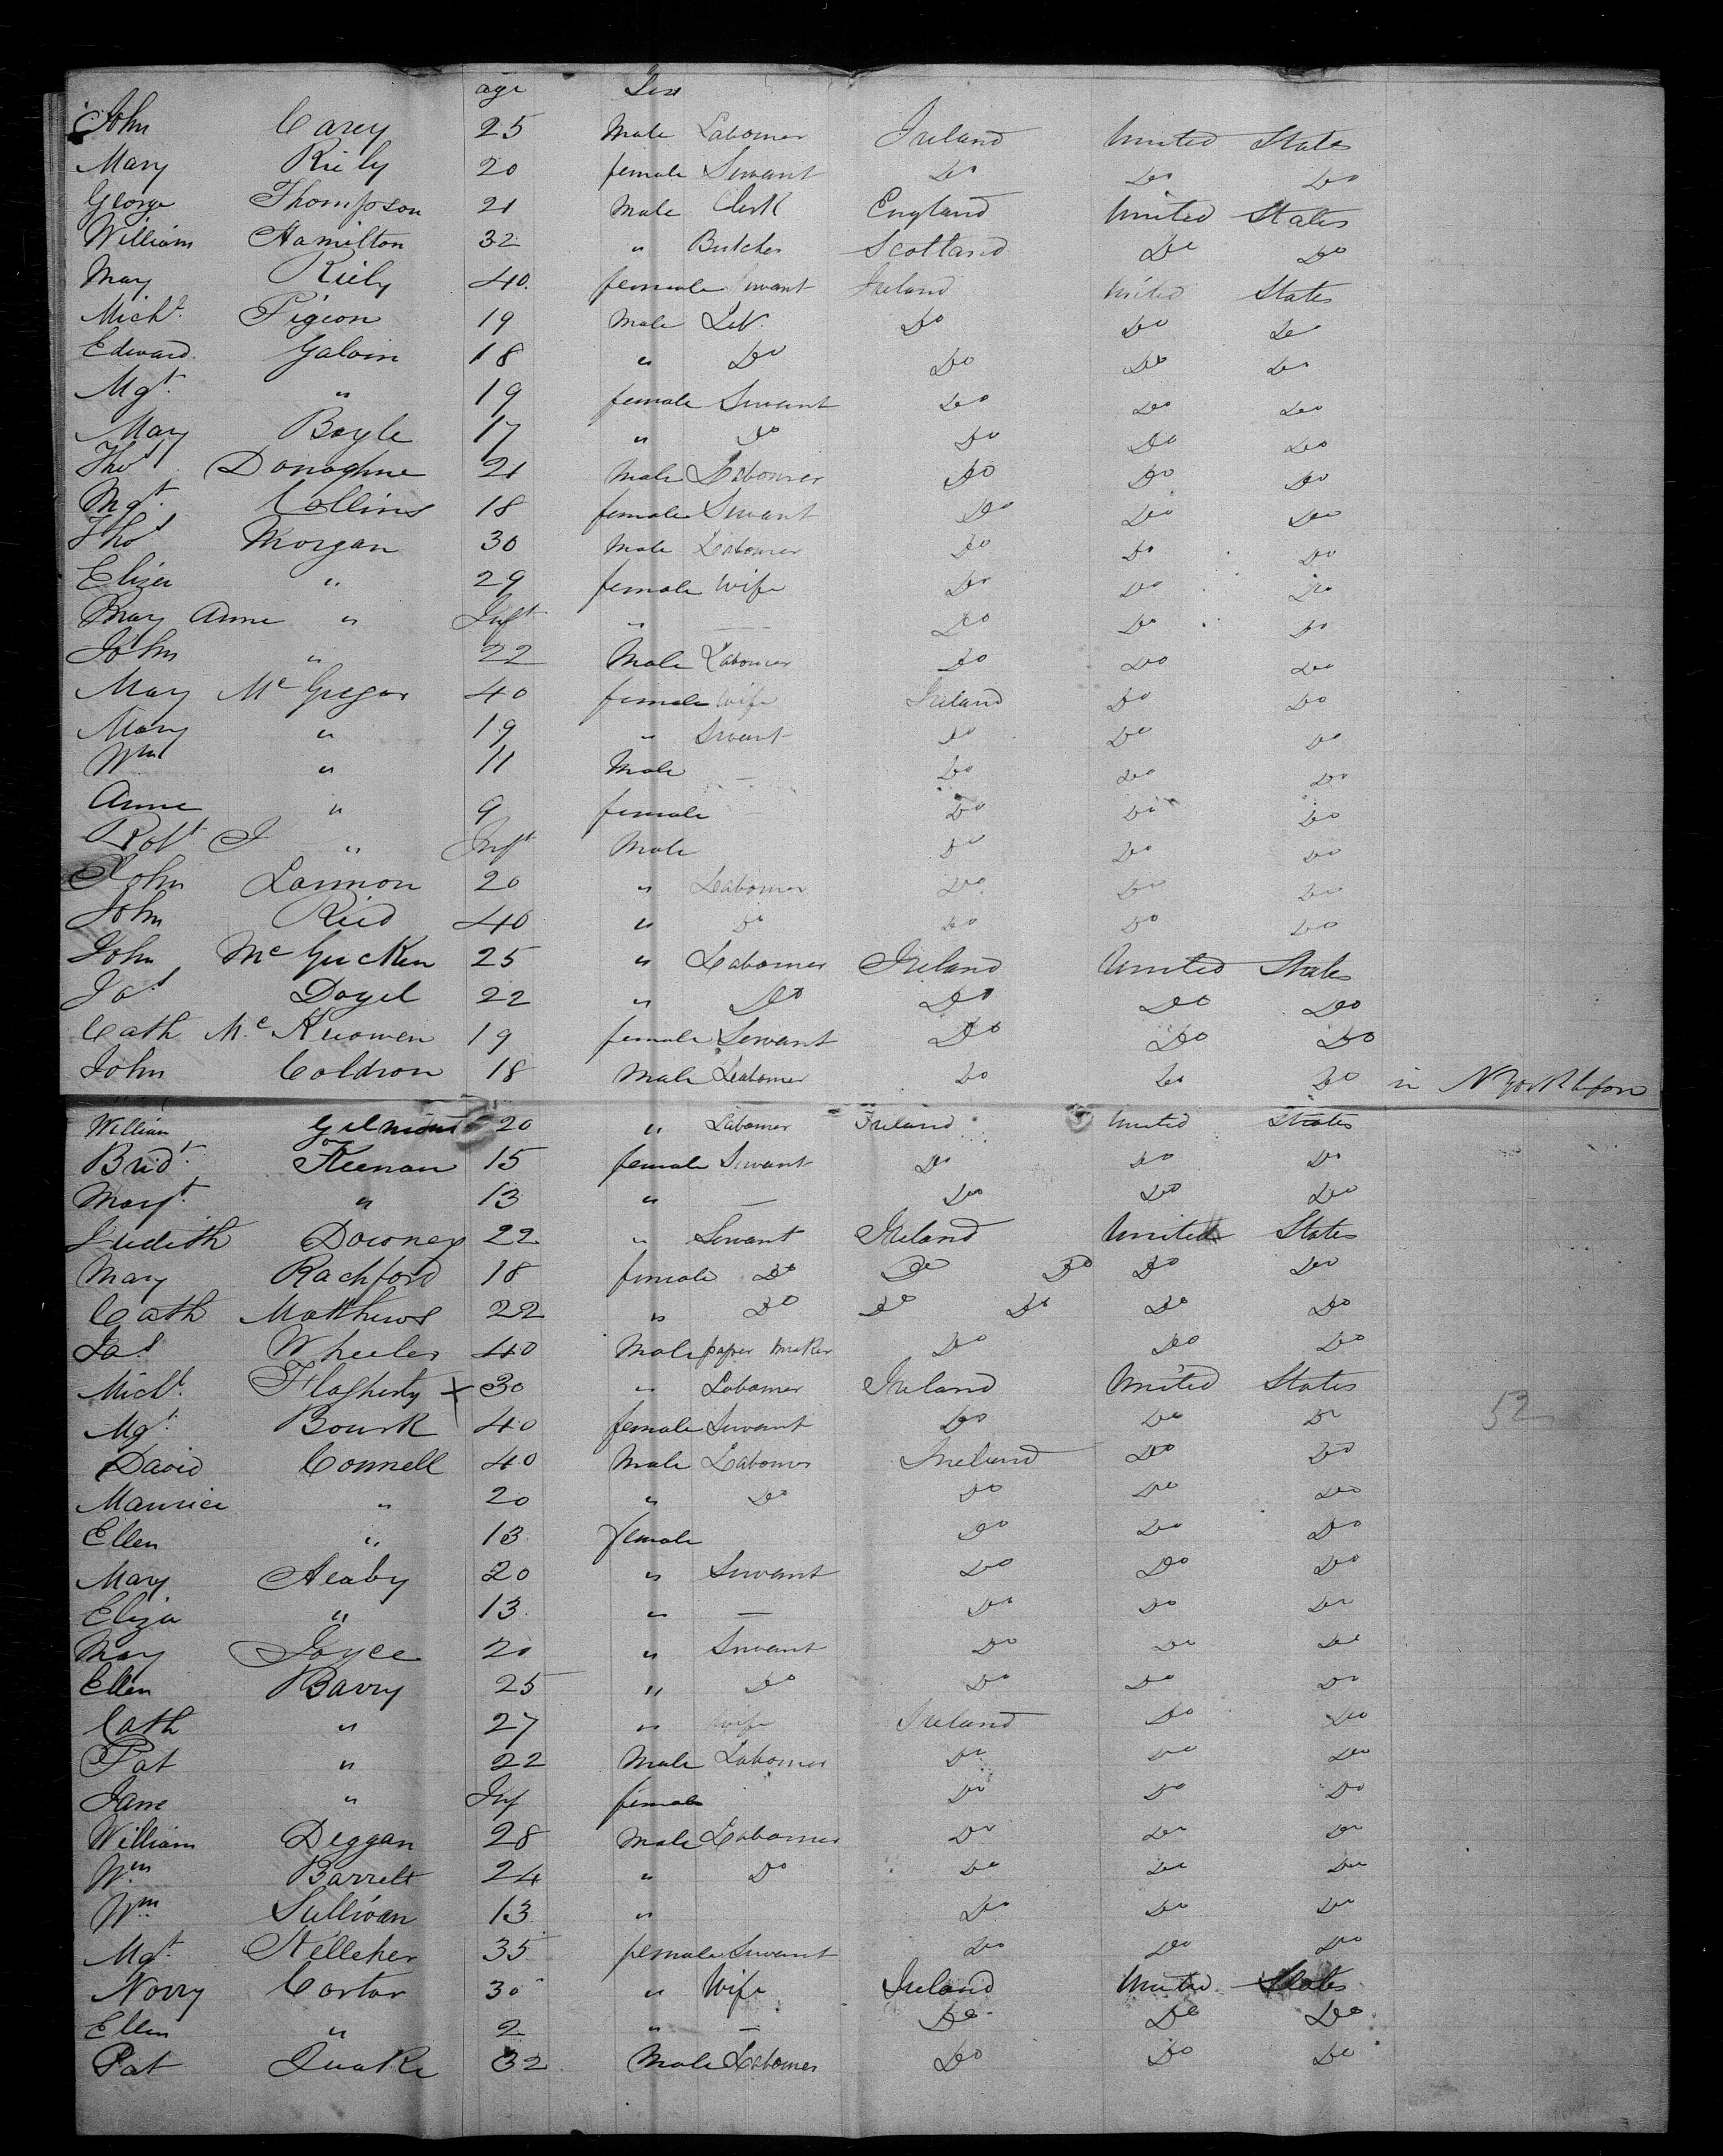 age Sex
John Carey 25 Male Labourer Ireland United States
Mary Riely 20 female Servant Do Do Do
George Thompson 21 Male Clerk England United States
William Hamilton 32 " Butcher Scotland Do Do
Mary Riely 40 female Servant Ireland United States
Michl. Pigeon 19 Male Lab. Do Do Do
Edward Galvin 18 " Do Do Do Do
Mgt. " 19 female Servant Do Do Do
Mary Boyle 17 " Do Do Do Do
Thos Donoghue 21 Male Labourer Do Do Do
Mgt. Collins 18 female Servant Do Do Do
Thos Morgan 30 Male Labourer Do Do Do
Eliza " 29 female Wife Do Do Do
Mary Anne " Inft " — Do Do Do
John " 22 Male Labourer Do Do Do
Mary McGregor 40 female Wife Ireland Do Do
Mary " 19 " Servant Do Do Do
Wm " 11 Male — Do Do Do
Anne " 9 female — Do Do Do
Robt J " Inft Male Do Do Do
John Lannon 20 " Labourer Do Do Do
John Reid 40 " Do Do Do Do
John McGucken 25 " Labourer Ireland United States
Jas Dogel 22 " Do Do Do Do
Cath Mc Keowen 19 female Servant Do Do Do
John Coldron 18 Male Labourer Do Do Do in N York before
William 20 " Labourer Ireland United States
Bridt. Keenan 15 female Servant Do Do Do
Margt. " 13 " — Do Do Do
Judith Downey 22 " Servant Ireland United States
Mary Rachford 18 female Do Do Do Do Do
Cath Matthews 22 " Do Do Do Do Do
Jas Wheeler 40 Male paper maker Do Do Do
Michl. Flagherty x 30 " Labourer Ireland United States
Mgt. Bourk 40 female Servant Do Do Do 52
David Connell 40 Male Labourer Ireland Do Do
Maurice " 20 " Do Do Do Do
Ellen " 13 female Do Do Do
Mary Heaby 20 " Servant Do Do Do
Eliza " 13 " — Do Do Do
Mary Joyce 20 " Servant Do Do Do
Ellen Barry 25 " Do Do Do Do
Cath " 27 " Wife Ireland Do Do
Pat " 22 Male Labourer Do Do Do
Jane " Inf female Do Do Do
William Deggan 28 Male Labourer Do Do Do
Wm Barrett 24 " Do Do Do Do
Wm Sullivan 13 " Do Do Do
Mgt. Kelleher 35 female Servant Do Do Do
Norry Cortor 30 " Wife Ireland United States
Ellen " 2 " — Do Do Do
Pat 32 Male Labourer Do Do Do